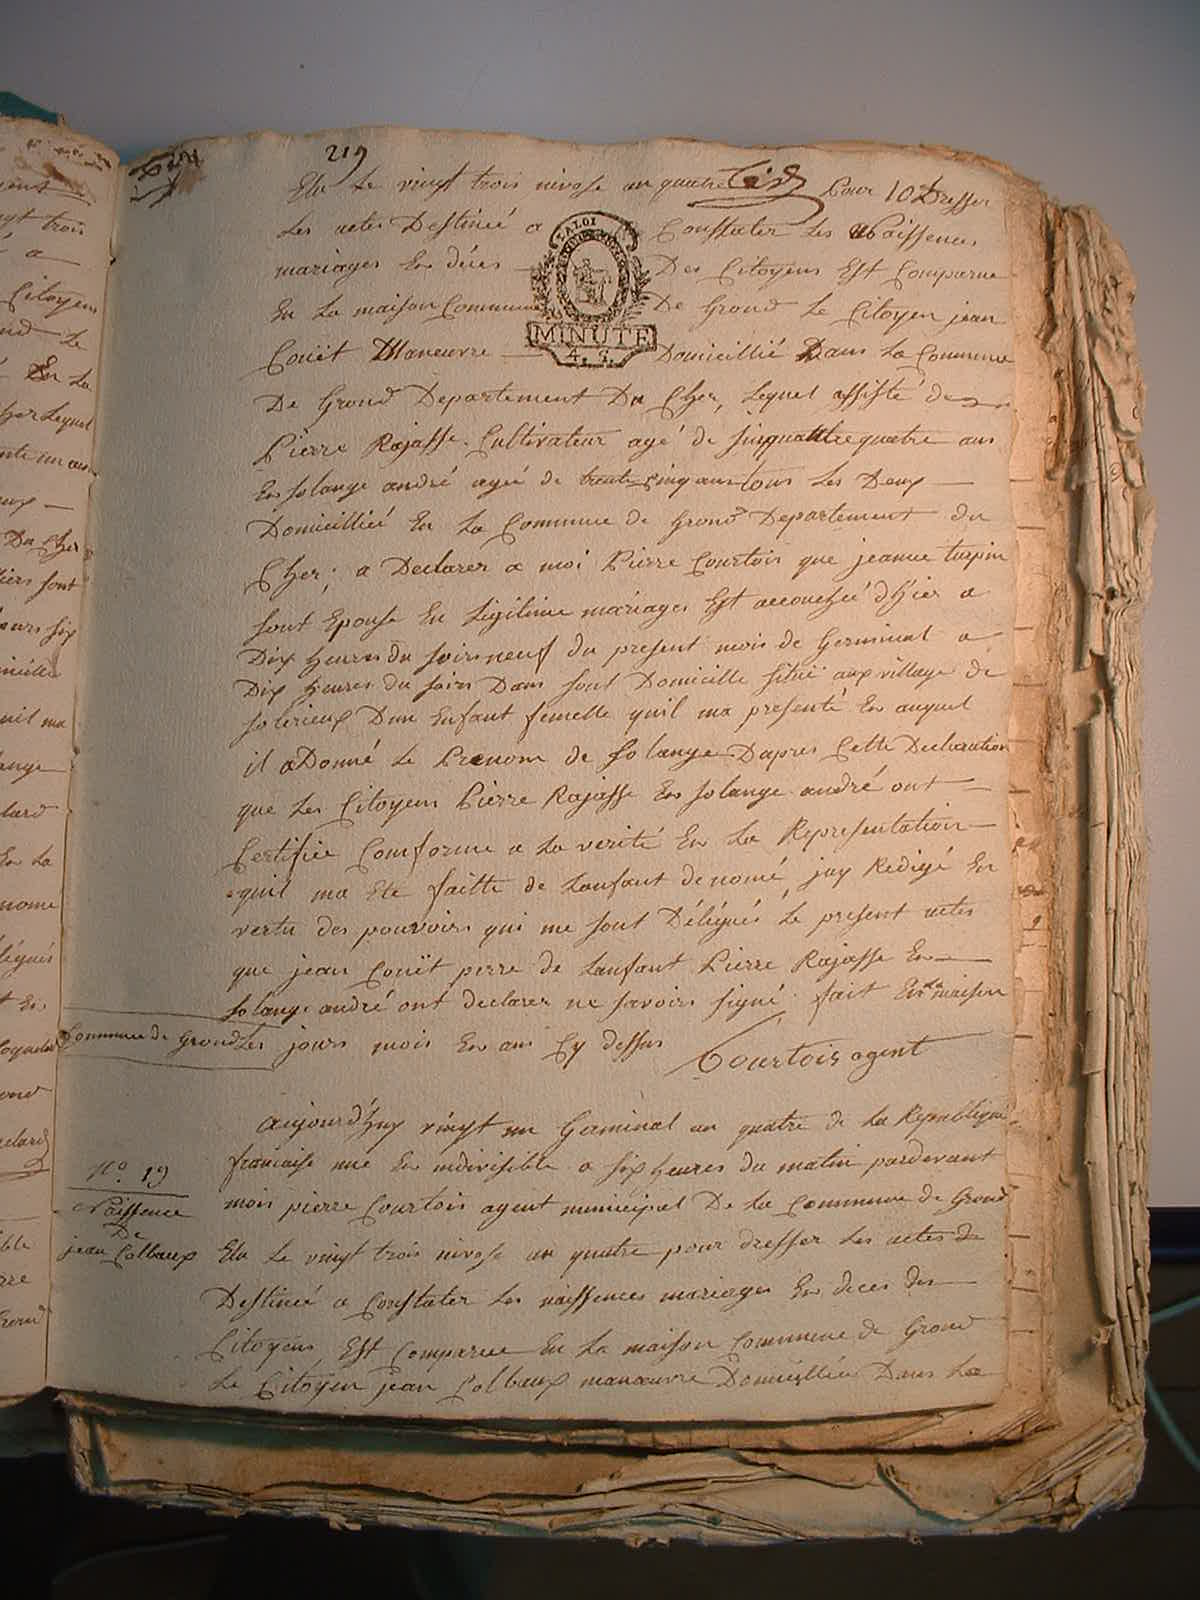 219
Elu Le vingt trois nivose an quatre Pour 10 Dresser
Les actes Destineé a Constater Les Naissences
mariages En déces Des Citoyens Est Comparue
En La maison Commune De Grond Le Citoyen jean
LA LOI
MINUTE
Couët Maneuvre Domicillié Dans La Commune
De Grond Departement Du Cher, Lequel assisté de
Pierre Rajasse Cultivateur agé de sinquattre quatre ans
En solange andré ageé de trente cinq ans tous Les Deux
Domicilliéé En La Commune de Grond Departement du
Cher; a Declarer a moi Pierre Courtois que jeanne turpin
sont Epouse En Legitime mariages Est accouchéé d'hier a
Dix heures du soirs neuf du present mois de Germinal a
Dix heures du soirs Dans sont Domicille situé aux village de
Dun Enfant femelle quil ma presenté En auquel
il a Donné Le Prenom de Solange Dapres Cette Declaration
que Les Citoyens Pierre Rajasse En solange andré ont
Certifiée Comforme a La verité En La Representation
quil ma Ete faitte de Lanfant denomé, jay Redigé En
vertu des pouvoirs qui me sont Délégués Le present actes
que jean Couët perre de Lanfant Pierre Rajasse En
solange andré ont declarer ne savoirs signé fait En la maison
Commune de Grond Les jours mois En ans Cy dessus
Courtois agent
aujourd'huy vingt un Germinal an quatre de La Republique
francaise une En indivisible a six heures du matin pardevant
No 19
Naissence
De
jean Colbaux
mois pierre Courtois agent municipal De La Commune de Grond
Elu Le vingt trois nivose an quatre pour dresser Les actes de
Destineé a Constater Les naissences mariages En deces des
Citoyens Est Comparue En La maison Commune de Grond
Le Citoyen jean Colbaux manœuvre Domicilliée Dans La